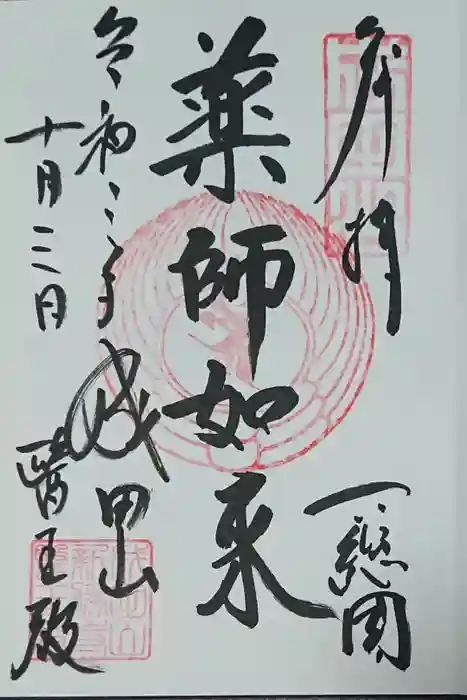 奉拝
下総国
薬師如来
令和二年
十月三日
成田山
醫王殿